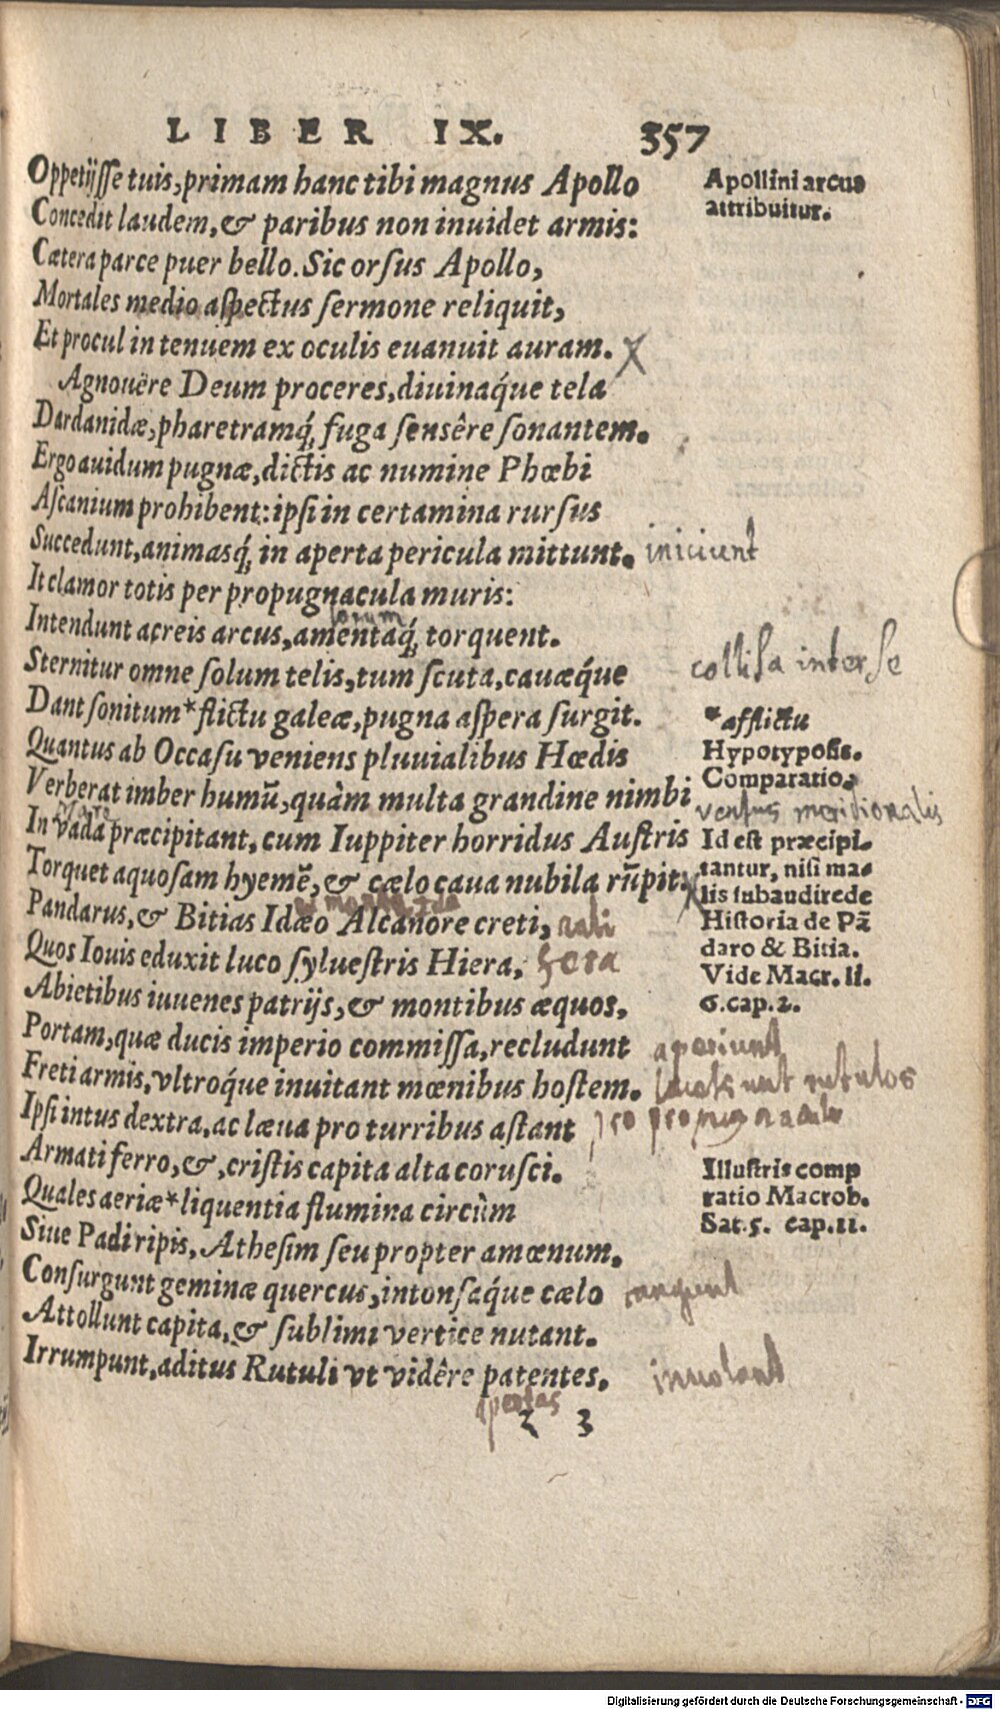 LIBER IX. 357
Oppetijsse tuis, primam hanc tibi magnus Apollo
Apollini arcus
Concedit laudem, & paribus non inuidet armis:
attribuitur.
Cætera parce puer bello. Sic orsus Apollo,
Mortales medio aspectus sermone reliquit,
Et procul in tenuem ex oculis euanuit auram. X
Agnouêre Deum proceres, diuináque tela
Dardanidæ, pharetramq́; fuga sensêre sonantem.
Ergo auidum pugnæ, dictis ac numine Phœbi
Ascanium prohibent: ipsi in certamina rursus
Succedunt, animasq́; in aperta pericula mittunt. iniciunt
It clamor totis per propugnacula muris:
lorum
Intendunt acreis arcus, amentaq́; torquent.
Sternitur omne solum telis, tum scuta, cauæq́ue
collisa inter se
Dant sonitum * flictu galeæ, pugna aspera surgit.
* afflictu
Quantus ab Occasu veniens pluuialibus Hœdis
Hypotyposis.
Comparatio.
Verberat imber humū, quàm multa grandine nimbi
ventus meridionalis
Mare
In vada præcipitant, cum Iuppiter horridus Austris
Id est præcipi-
tantur, nisi ma-
Torquet aquosam hyemē, & cælo caua nubila rūpit. X
lis subaudirede
Pandarus, & Bitias Idæo Alcanore creti, nati
Historia de Pā
daro & Bitia.
Quos Iouis eduxit luco syluestris Hiera,
Vide Macr. li.
Abietibus iuuenes patrijs, & montibus æquos.
6. cap. 2.
Portam, quæ ducis imperio commissa, recludunt aperiunt
Freti armis, vltroq́ue inuitant mœnibus hostem. rutulos
Ipsi intus dextra, ac læua pro turribus astant pro propugnaculis
Armati ferro, &, cristis capita alta corusci.
Illustris comp
Quales aeriæ * liquentia flumina circùm
ratio Macrob.
Siue Padi ripis, Athesim seu propter amœnum.
Sat. 5. cap. 11.
Consurgunt geminæ quercus, intonsáque cælo tangunt
Attollunt capita, & sublimi vertice nutant.
Irrumpunt, aditus Rutuli vt vidêre patentes. inuolant
apertas
z 3
Digitalisierung gefördert durch die Deutsche Forschungsgemeinschaft - DFG